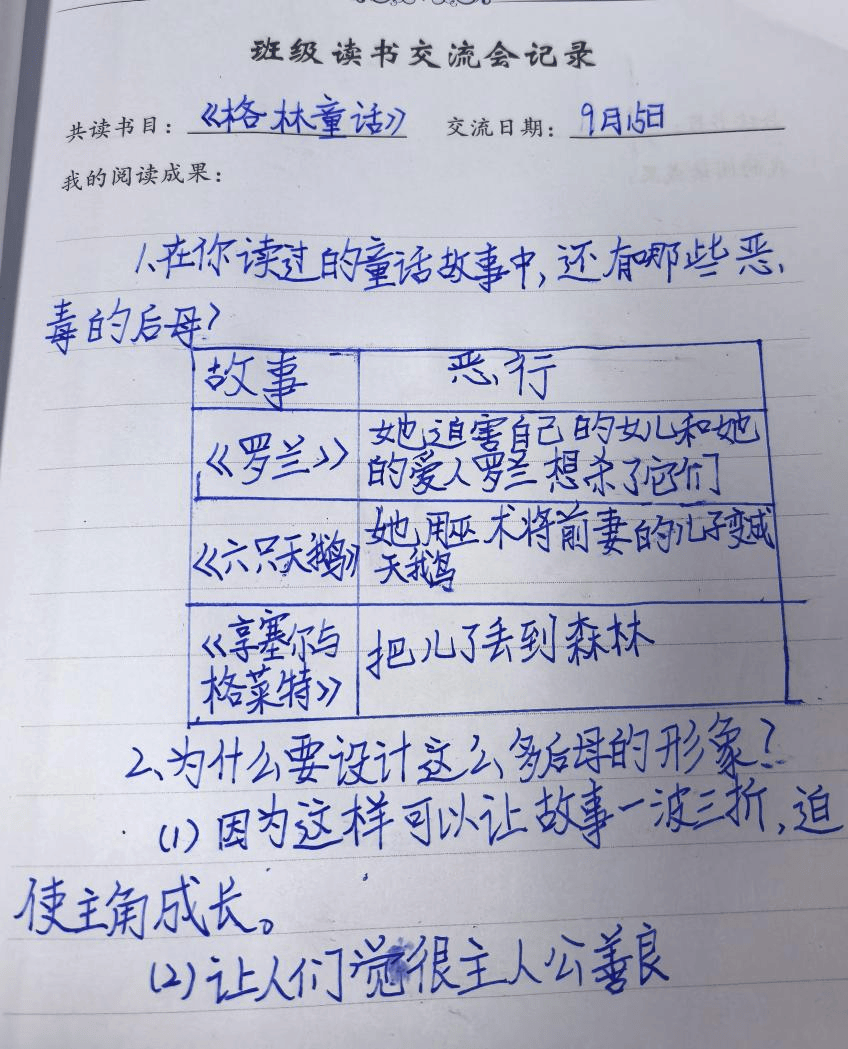 班级读书交流会记录
共读书目：《格林童话》 交流日期：9月15日
我的阅读成果：
1、在你读过的童话故事中，还有哪些恶
毒的后母？
故事 恶行
《罗兰》 她迫害自己的女儿和她
的爱人罗兰想杀了它们
《六只天鹅》 她用巫术将前妻的儿子变成
天鹅
《享塞尔与
格莱特》 把儿子丢到森林
2、为什么要设计这么多后母的形象？
(1)因为这样可以让故事一波三折，迫
使主角成长。
(2)让人们觉很主人公善良